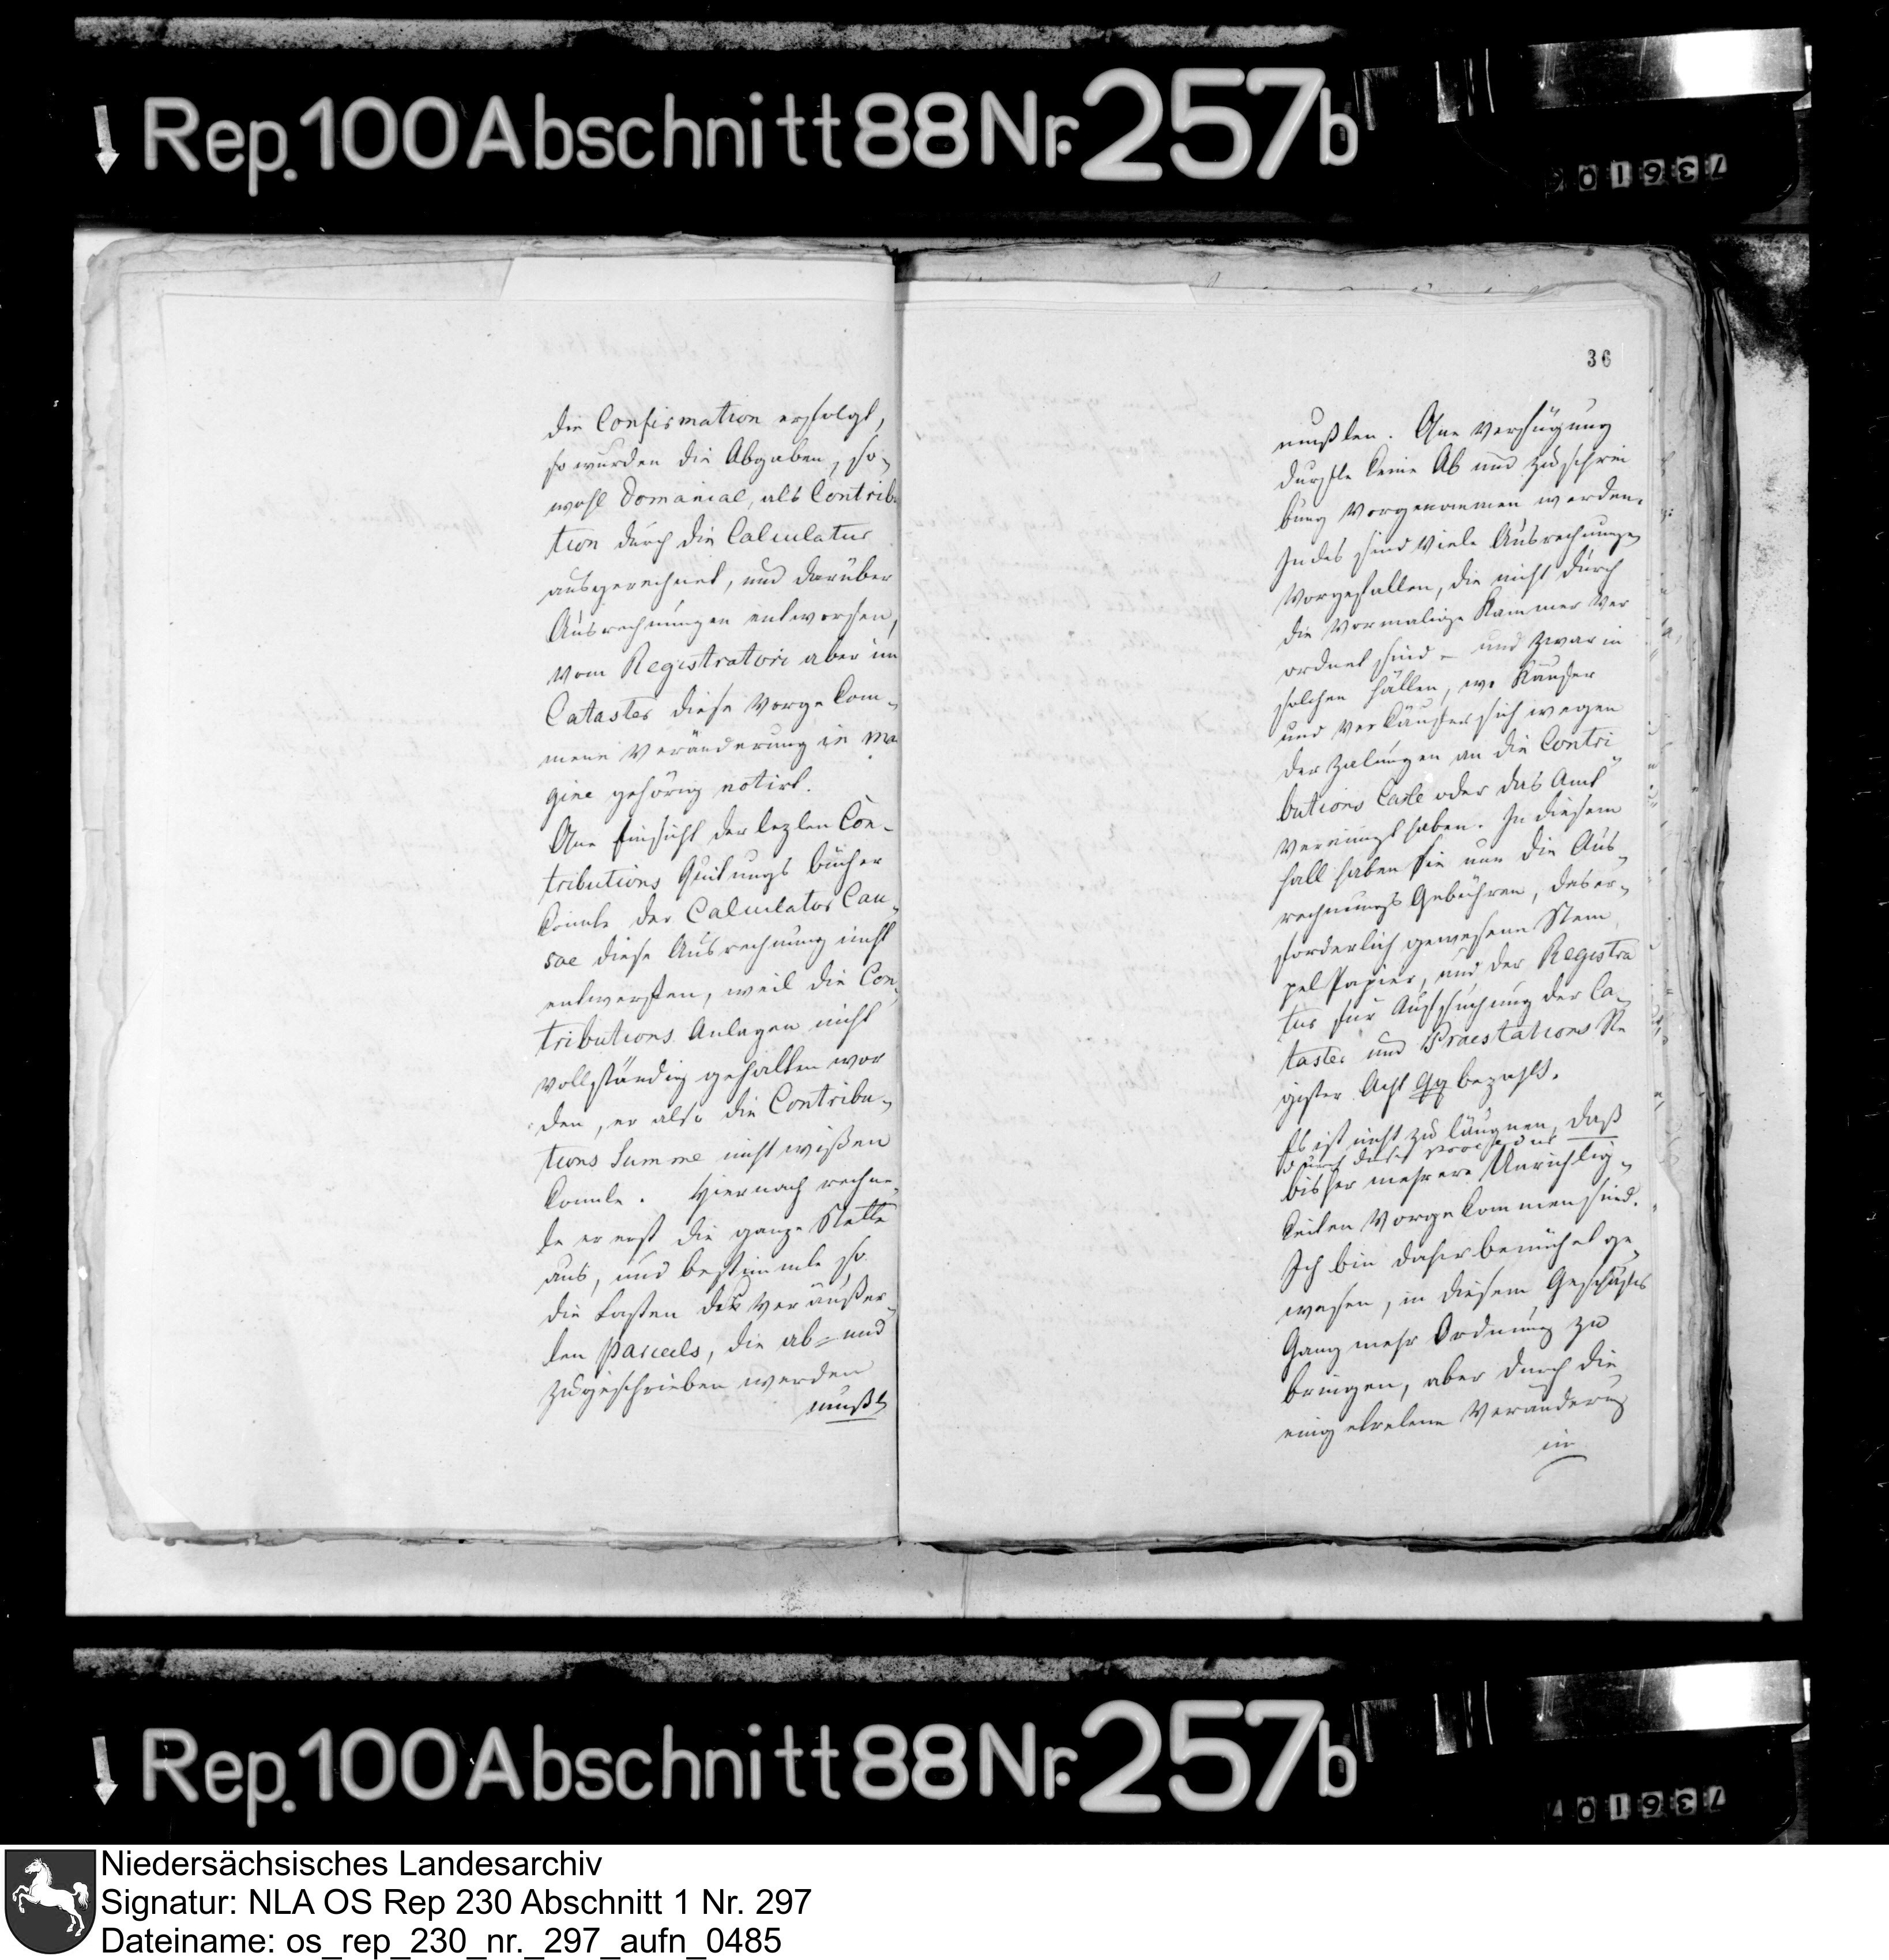 Rep. 100 Abschnitt 88 Nr. 257b
736106
die Confirmation erfolgt,
so wurden die Abgaben, so-
wohl Domanial, als Contribu
tion durch die Calculatur
ausgerechnet, und darüber
Ausrechnungen entworfen,
vom Registratori aber im
Cataster diese vorgekom-
mene Veränderung in mar
gine gehörig notirt.
One Einsicht der lezten Con-
tributions Quitungs bücher
konnte der Calculator Cau-
sae diese Ausrechnung nicht
entwerffen, weil die Con-
tributions Anlagen nicht
vollständig gehalten wor
den, er also die Contribu-
tions Summe nicht wißen
konnte. Hiernach rechne-
te er erst die ganze Stette
aus, und bestimmte so
die Lasten des veräußer-
ten Parcels, die ab= und
zugeschrieben werden
mußt
36
mußten. One Verfügung
durfte keine Ab und Zuschrei
bung vorgenommen werden.
Indes sind viele Ausrechnungen
vorgefallen, die nicht durch
die vormalige Kammer ver
ordnet sind - und zwar in
solchen Fällen, wo Käufer
und Verkäufer sich wegen
der Zalungen an die Contri
butions Casse oder das Amt
vereinigt haben. In diesem
Fall haben sie nur die Aus-
rechnungs Gebühren, das er-
forderlich gewesene Stem
pel Papier, und der Registra
tur für Aufsuchung der Ca-
taster und Praestations Re
gister Acht Gg bezahlt.
Es ist nicht zu läugnen, daß
durch dieses
bisher mehrere Unrichtig-
keiten vorgekommen sind.
Ich bin daher bemühet ge-
wesen, in diesem Geschäfts
Gang mehr Ordnung zu
bringen, aber durch die
eingetretene Veränderung
in
Rep. 100 Abschnitt 88 Nr. 257b
736107
Niedersächsisches Landesarchiv
Signatur: NLA OS Rep 230 Abschnitt 1 Nr. 297
Dateiname: os_rep_230_nr._297_aufn_0485